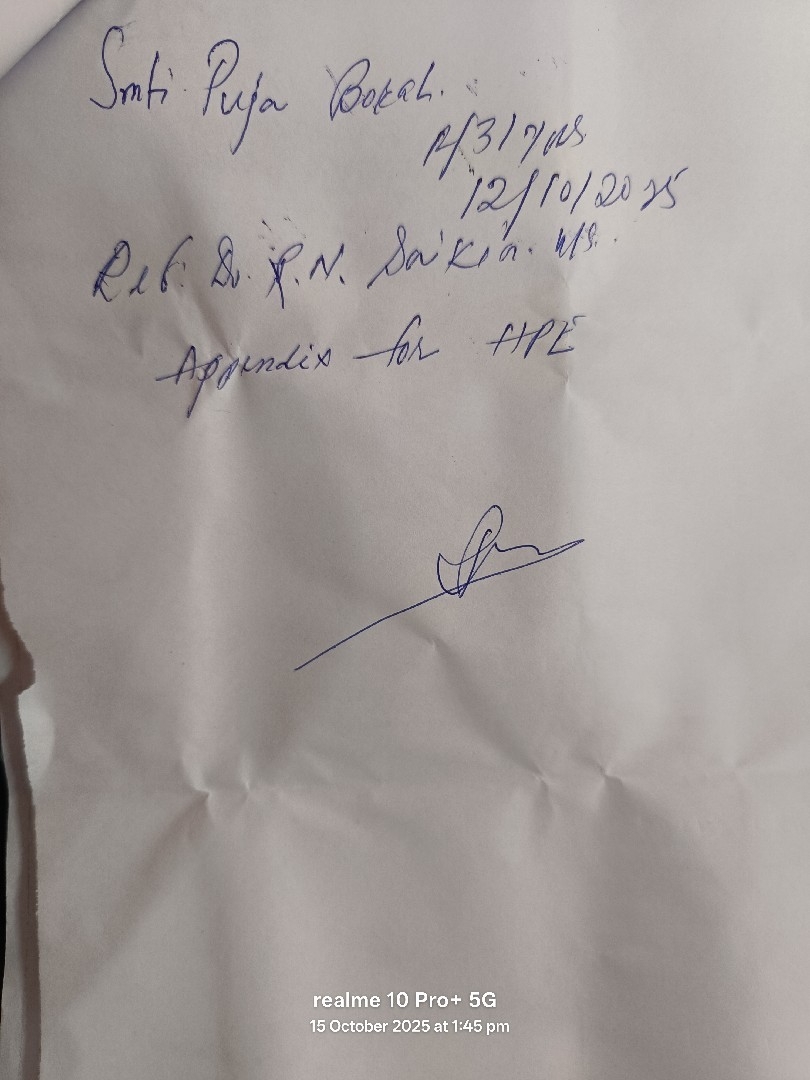 Smti. Puja Borah.
F/31 yrs
12/10/2025
Ref. Dr. R. N. Saikia. M/S.
Appendix for HPE
realme 10 Pro+ 5G
15 October 2025 at 1:45 pm